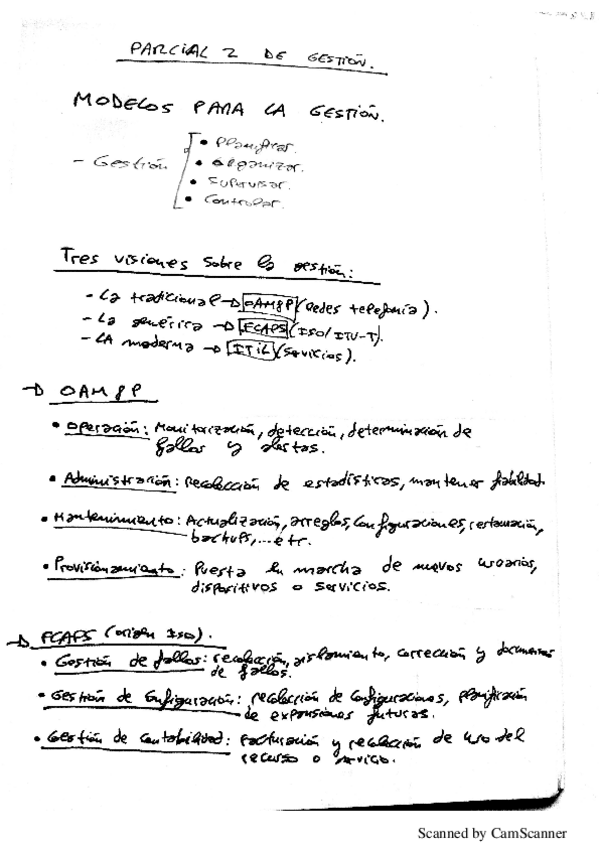 PARCIAL 2 DE GESTIÓN.
MODELOS PARA LA GESTIÓN.
- Gestión
• Planificar.
• Organizar.
• Supervisar.
• Controlar.
Tres visiones sobre la gestión:
- La tradicional → OAM&P (Redes telefonía).
- La genérica → FCAPS (ISO/ITU-T).
- LA moderna → ITIL (Servicios).
→ OAM&P
• Operación: Monitorización, detección, determinación de
fallos y alertas.
• Administración: recolección de estadísticas, mantener fiabilidad.
• Mantenimiento: Actualización, arreglos, configuraciones, restauración,
backups,... etc.
• Provisionamiento: Puesta en marcha de nuevos usuarios,
dispositivos o servicios.
→ FCAPS (origen ISO).
• Gestión de fallos: recolección, aislamiento, corrección y
de fallos.
• Gestión de Configuración: recolección de configuraciones, planificación
de expansiones futuras.
• Gestión de contabilidad: Facturación y recolección de uso del
recurso o servicio.
Scanned by CamScanner